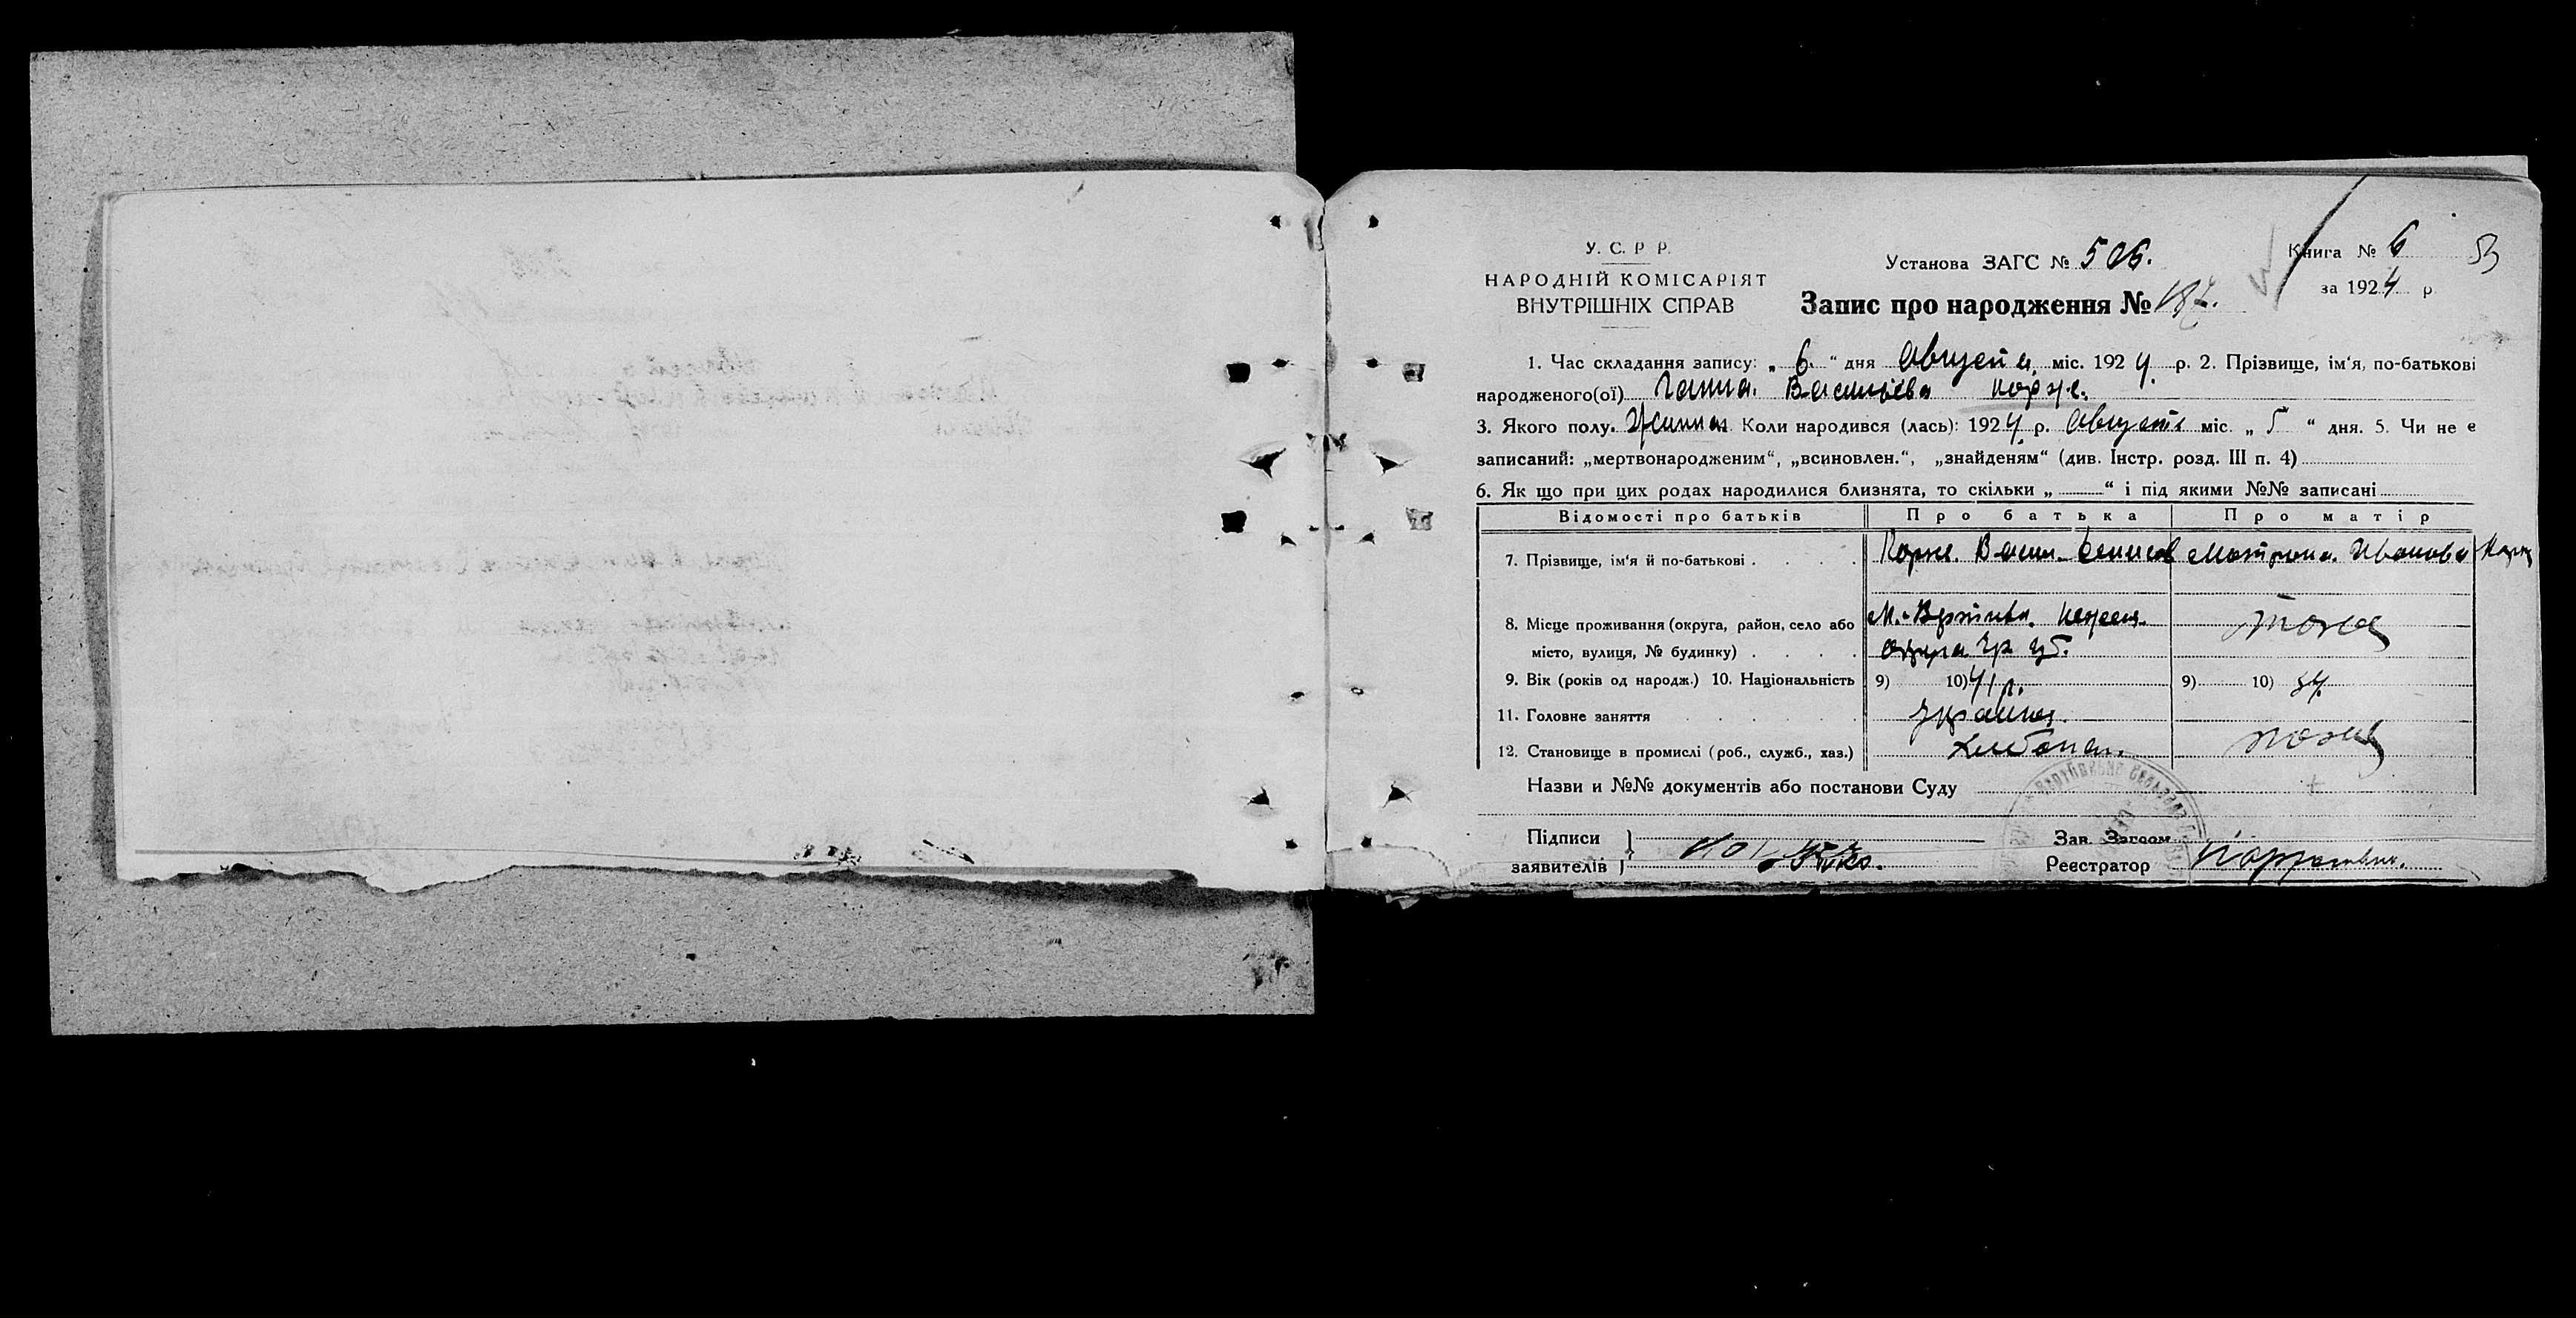 У. С. Р Р.
НАРОДНІЙ КОМІСАРІЯТ
ВНУТРІШНІХ СПРАВ
Установа ЗАГС № 506.
Запис про народження № 187.
Книга № 6
53
за 1924 р
1. Час складання запису: „ 6. “ дня Августа міс. 1924 р. 2. Прізвище, ім‘я, по-батькові
народженого(ої) Ганна. Васильева Корж.
3. Якого полу. Жинка. Коли народився (лась): 1924 р. Августа міс. „ 5 “ дня. 5. Чи не є
записаний: „мертвонародженим“, „всиновлен.“, „знайденям“ (див. Інстр. розд. III п. 4)
6. Як що при цих родах народилися близнята, то скільки „ “ і під якими №№ записані
Відомості про батьків Про батька Про матір
7. Прізвище, ім‘я й по-батькові . . . . Корж. Васил. Мотрона. Иванова Корж
8. Місце проживання (округа, район, село або М. Вертіевка Нежен. тоже
місто, вулиця, № будинку) . . . . округа
9. Вік (років од народж.) 10. Національність 9) 10) 41 р. 9) 10) 34
11. Головне заняття . . . . украинец.
12. Становище в промислі (роб., служб., хаз.) Хлебопаш. тоже
Назви и №№ документів або постанови Суду
Підписи
заявителів
Зав. Загсом
Реєстратор